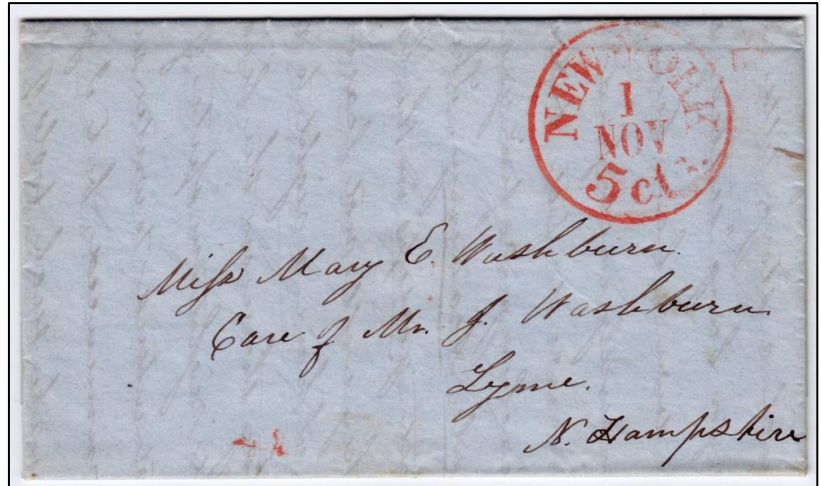 NEW-YORK
1
NOV
5 cts
Miss Mary E. Washburn.
Care of Mr. J. Washburn
Lyme.
N. Hampshire